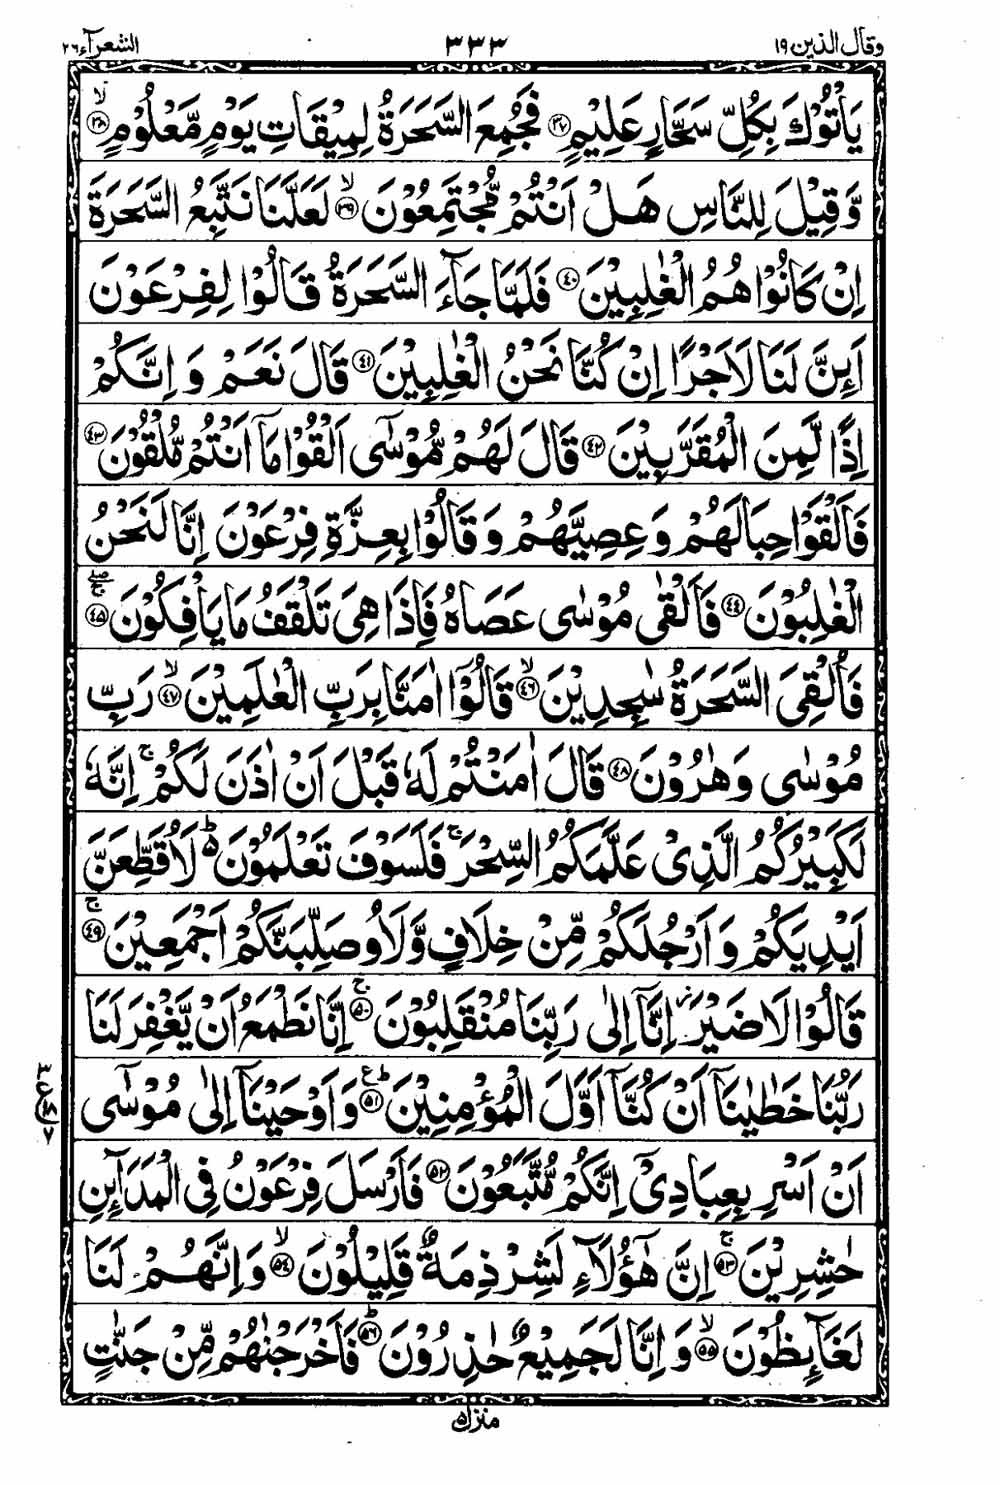 وقال الذين ١٩ ٣٣٣ الشعرآء ٢٦
يَاْتُوْكَ بِكُلِّ سَحَّارٍ عَلِيْمٍ ﴿٣٧﴾ فَجُمِعَ السَّحَرَةُ لِمِيْقَاتِ يَوْمٍ مَّعْلُوْمٍ ﴿٣٨﴾ۙ
وَّقِيْلَ لِلنَّاسِ هَلْ اَنْتُمْ مُّجْتَمِعُوْنَ ﴿٣٩﴾ۙ لَعَلَّنَا نَتَّبِعُ السَّحَرَةَ
اِنْ كَانُوْا هُمُ الْغٰلِبِيْنَ ﴿٤٠﴾ فَلَمَّا جَآءَ السَّحَرَةُ قَالُوْا لِفِرْعَوْنَ
اَئِنَّ لَنَا لَاَجْرًا اِنْ كُنَّا نَحْنُ الْغٰلِبِيْنَ ﴿٤١﴾ قَالَ نَعَمْ وَ اِنَّكُمْ
اِذًا لَّمِنَ الْمُقَرَّبِيْنَ ﴿٤٢﴾ قَالَ لَهُمْ مُّوْسٰٓى اَلْقُوْا مَاۤ اَنْتُمْ مُّلْقُوْنَ ﴿٤٣﴾
فَاَلْقَوْا حِبَالَهُمْ وَ عِصِيَّهُمْ وَ قَالُوْا بِعِزَّةِ فِرْعَوْنَ اِنَّا لَنَحْنُ
الْغٰلِبُوْنَ ﴿٤٤﴾ فَاَلْقٰى مُوْسٰى عَصَاهُ فَاِذَا هِىَ تَلْقَفُ مَا يَاْفِكُوْنَ ﴿٤٥﴾ۖۚ
فَاُلْقِىَ السَّحَرَةُ سٰجِدِيْنَ ﴿٤٦﴾ۙ قَالُوْۤا اٰمَنَّا بِرَبِّ الْعٰلَمِيْنَ ﴿٤٧﴾ۙ رَبِّ
مُوْسٰى وَ هٰرُوْنَ ﴿٤٨﴾ قَالَ اٰمَنْتُمْ لَهٗ قَبْلَ اَنْ اٰذَنَ لَكُمْ ۚ اِنَّهٗ
لَكَبِيْرُكُمُ الَّذِىْ عَلَّمَكُمُ السِّحْرَ ۚ فَلَسَوْفَ تَعْلَمُوْنَ ؕ لَاُقَطِّعَنَّ
اَيْدِيَكُمْ وَ اَرْجُلَكُمْ مِّنْ خِلَافٍ وَّ لَاُوصَلِّبَنَّكُمْ اَجْمَعِيْنَ ﴿٤٩﴾ۚ
قَالُوْا لَا ضَيْرَ ؗ اِنَّاۤ اِلٰى رَبِّنَا مُنْقَلِبُوْنَ ﴿٥٠﴾ۚ اِنَّا نَطْمَعُ اَنْ يَّغْفِرَ لَنَا
رَبُّنَا خَطٰيٰنَاۤ اَنْ كُنَّاۤ اَوَّلَ الْمُؤْمِنِيْنَ ﴿٥١﴾ؕع وَ اَوْحَيْنَاۤ اِلٰى مُوْسٰٓى
اَنْ اَسْرِ بِعِبَادِىْۤ اِنَّكُمْ مُّتَّبَعُوْنَ ﴿٥٢﴾ فَاَرْسَلَ فِرْعَوْنُ فِى الْمَدَآئِنِ
حٰشِرِيْنَ ﴿٥٣﴾ۚ اِنَّ هٰۤؤُلَآءِ لَشِرْذِمَةٌ قَلِيْلُوْنَ ﴿٥٤﴾ۙ وَ اِنَّهُمْ لَنَا
لَغَآئِظُوْنَ ﴿٥٥﴾ۙ وَ اِنَّا لَجَمِيْعٌ حٰذِرُوْنَ ﴿٥٦﴾ؕ فَاَخْرَجْنٰهُمْ مِّنْ جَنّٰتٍ
منزل ٥